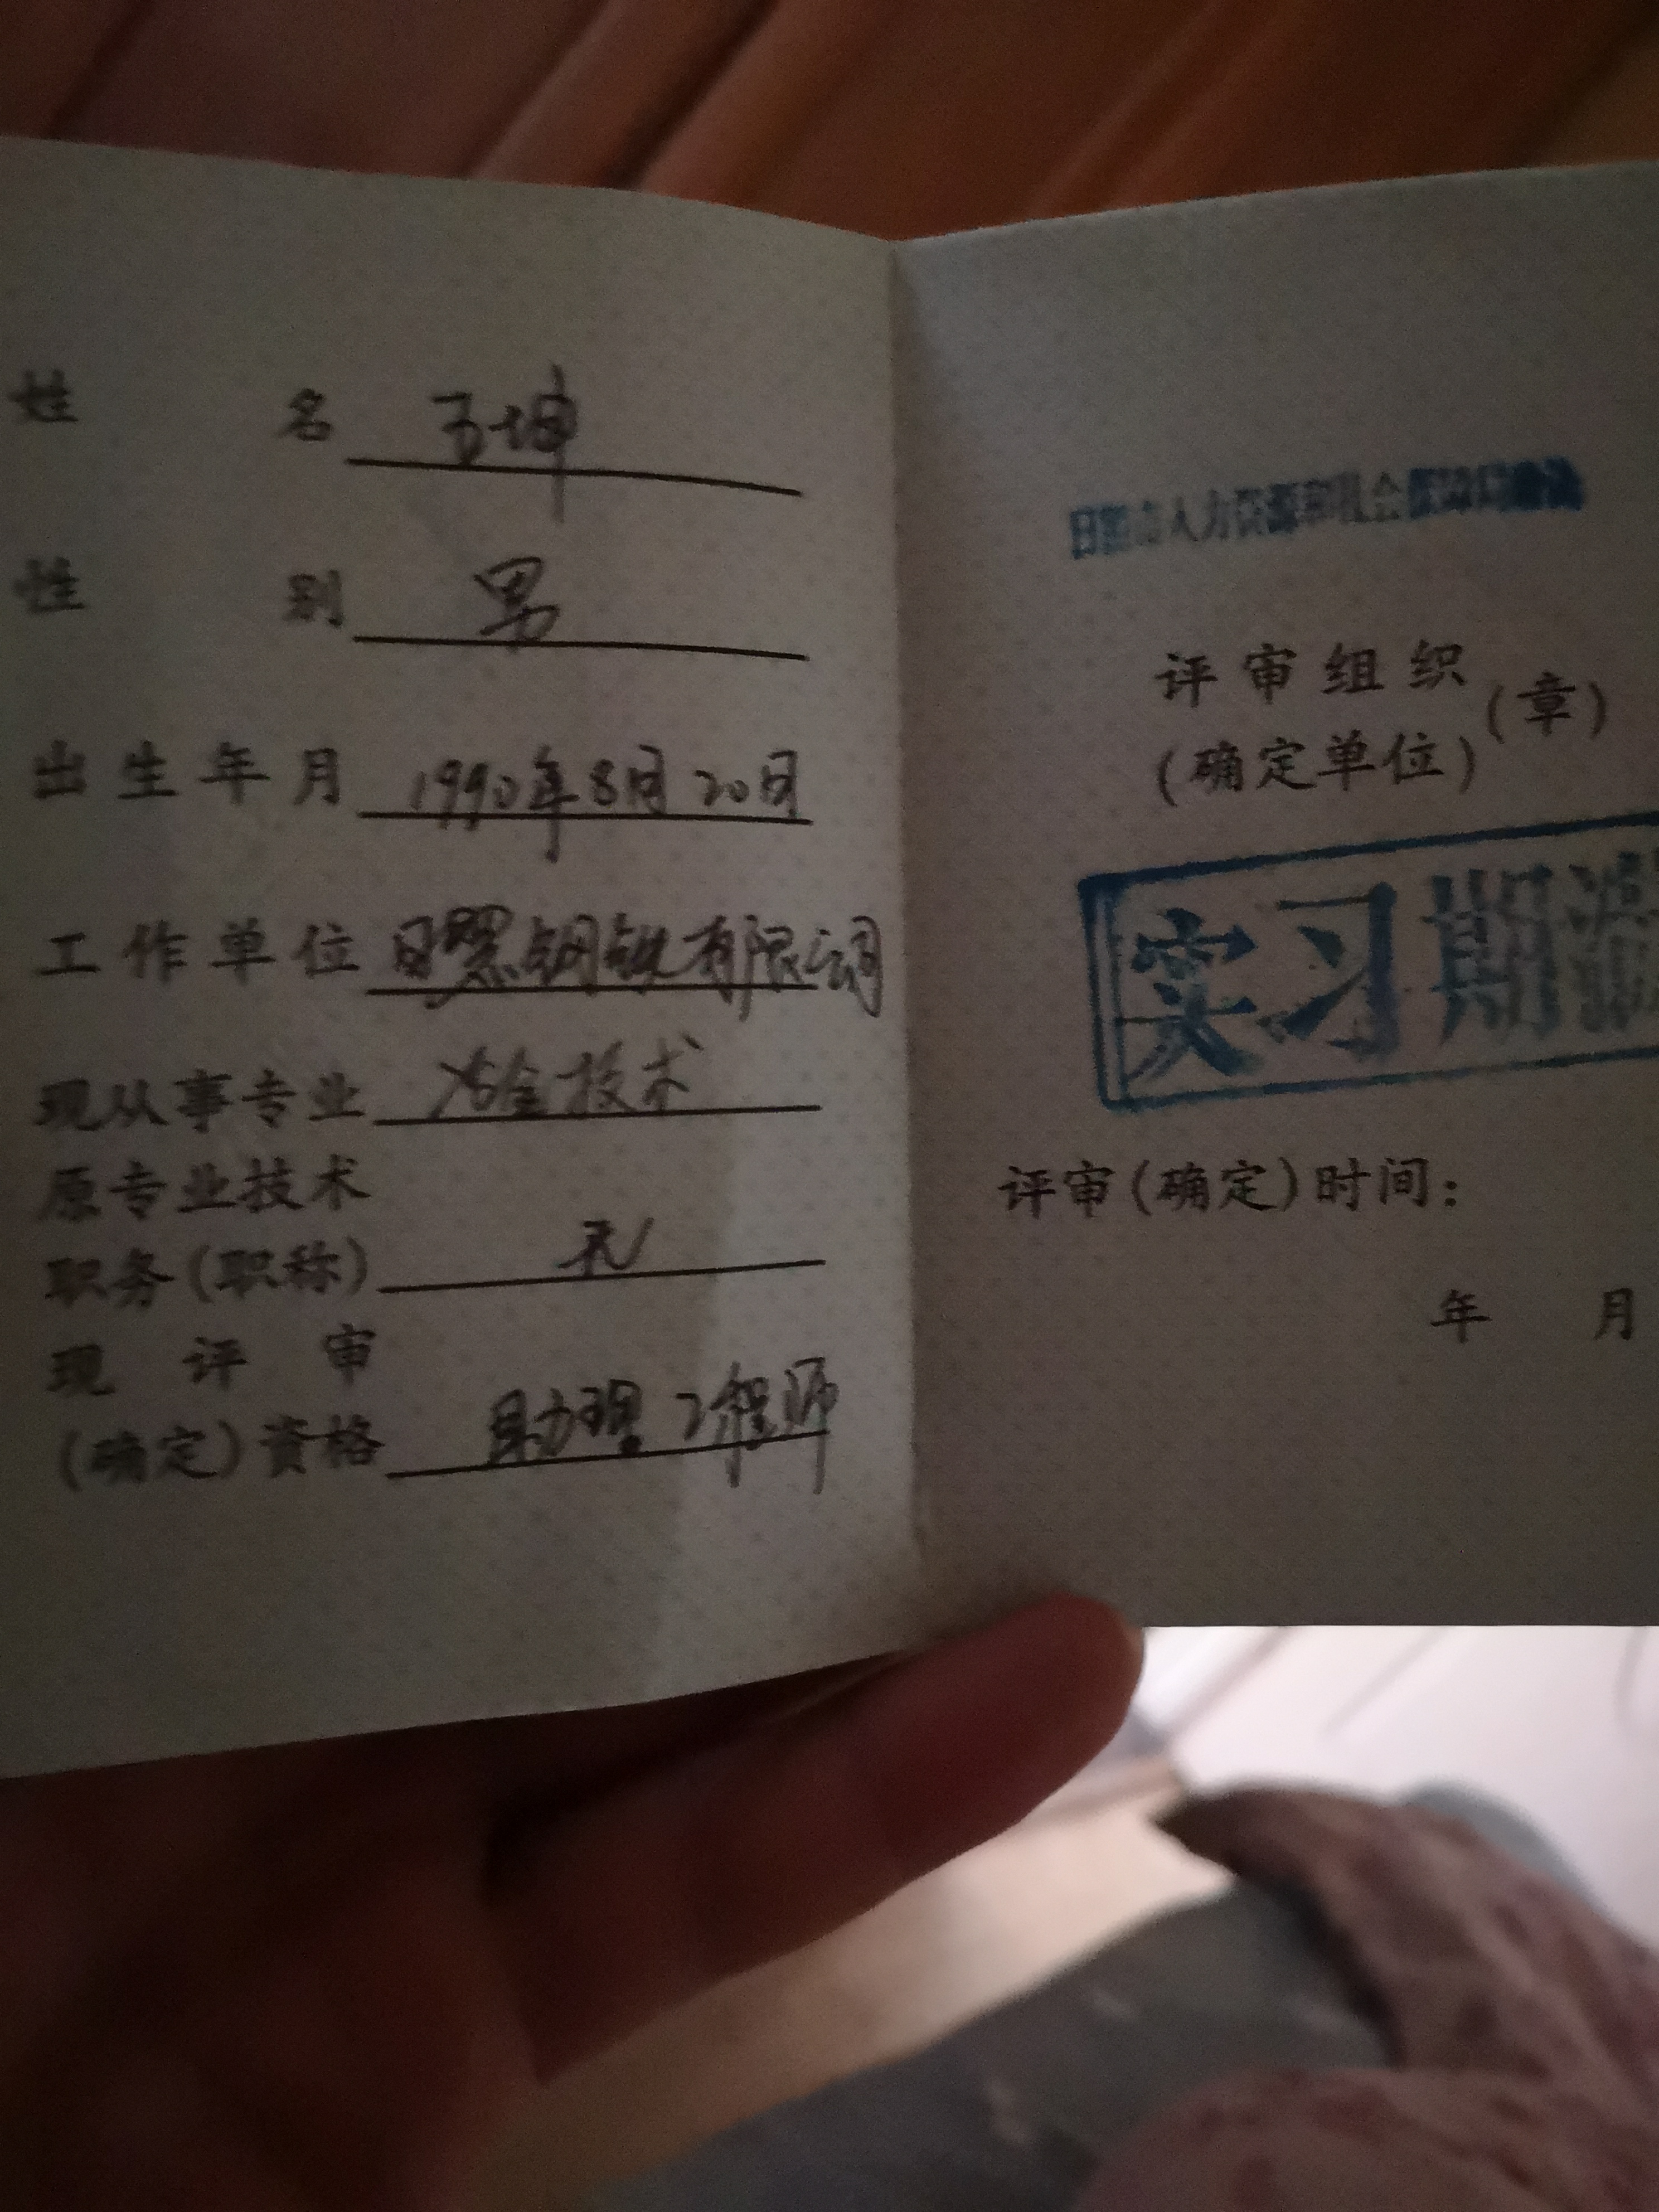 姓名 王坤
性别 男
出生年月 1990年8月20日
工作单位 日照钢铁有限公司
现从事专业 冶金技术
原专业技术
职务(职称) 无
现评审
(确定)资格 助理工程师
日照市人力资源和社会保障局
评审组织
(章)
(确定单位)
实习期满
评审(确定)时间:
年 月